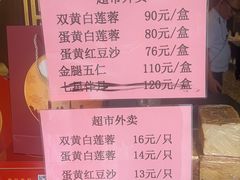 超市外卖
双黄白莲蓉 90元/盒
蛋黄白莲蓉 80元/盒
蛋黄红豆沙 76元/盒
金腿五仁 110元/盒
七星伴月 120元/盒
超市外卖
双黄白莲蓉 16元/只
蛋黄白莲蓉 14元/只
蛋黄红豆沙 13元/只